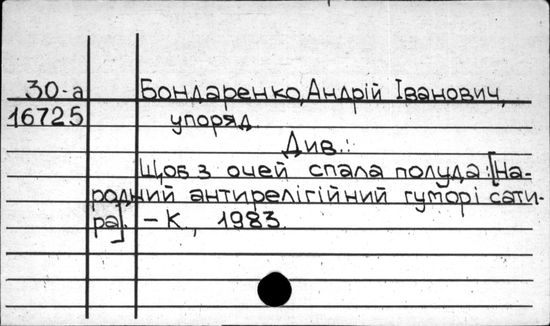 30-а Бондаренко, Андрій Іванович,
16725 упоряд.
Див.:
Щоб з очей спала полуда: [На-
родний антирелігійний гумор і сати-
ра]. – К., 1983.